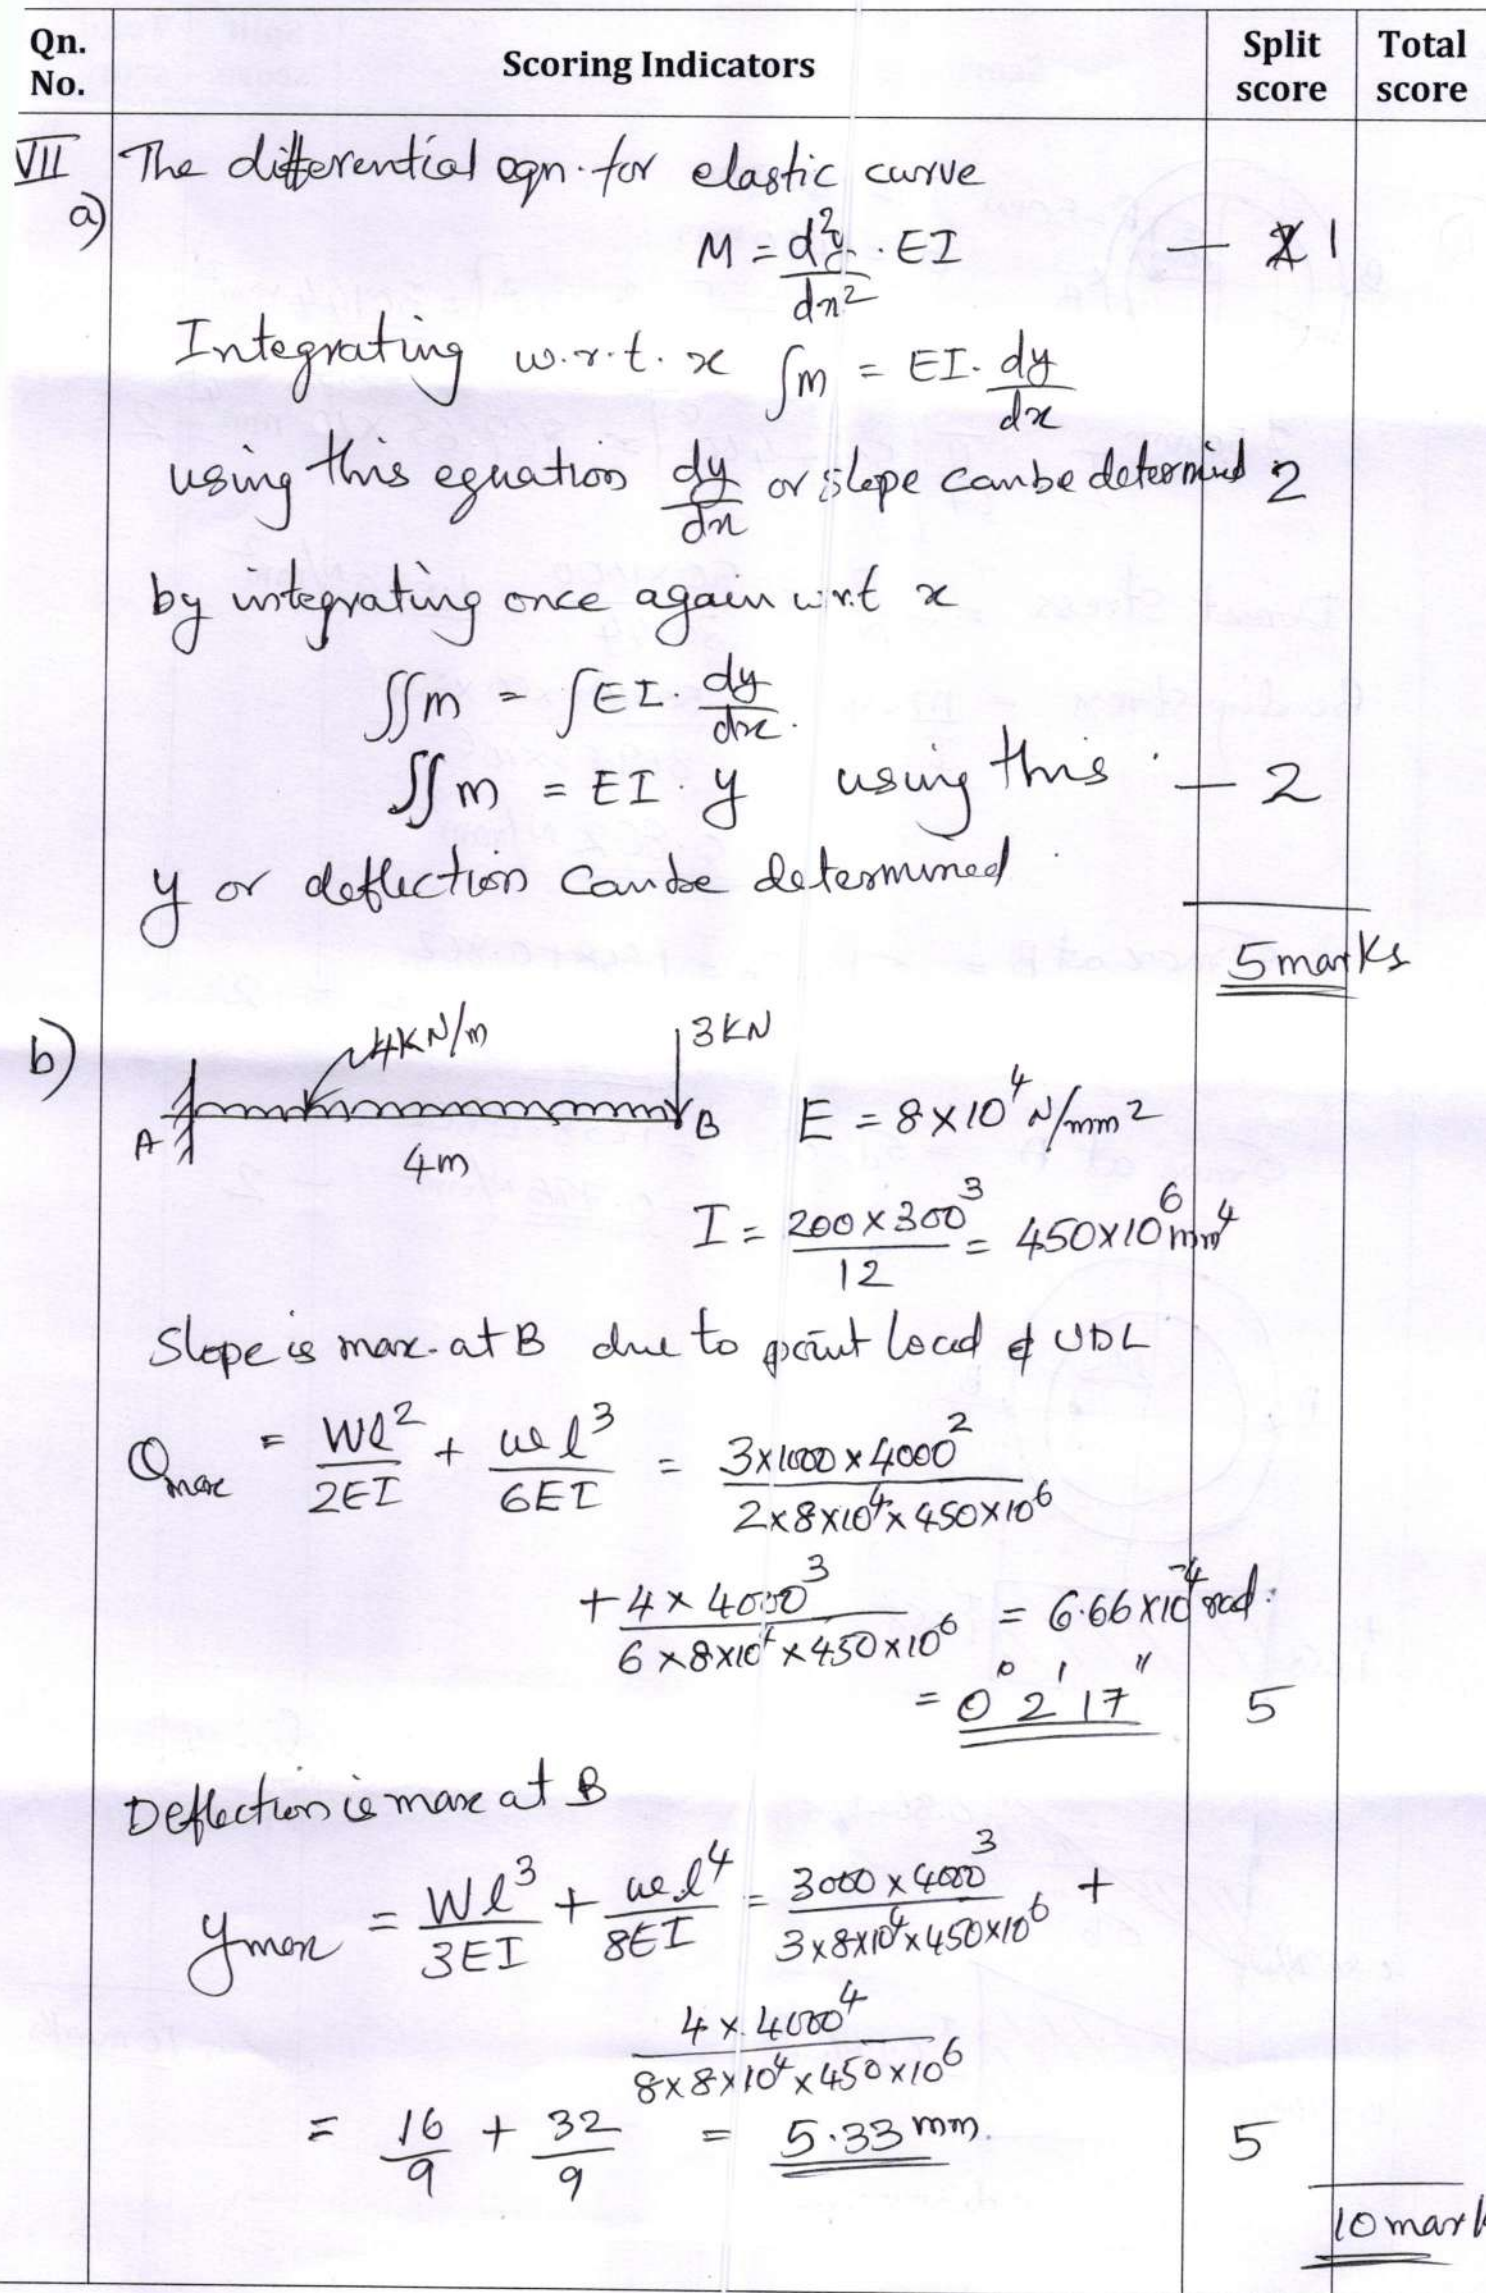 Qn. No. Scoring Indicators Split score Total score
VII The differential eqn. for elastic curve
a)
M = d²y/dx² . EI — 1
Integrating w.r.t. x ∫m = EI. dy/dx
using this equation dy/dx or slope can be determined 2
by integrating once again w.r.t x
∬m = ∫EI. dy/dx.
∬m = EI. y using this — 2
y or deflection can be determined.
5 marks
b)
4KN/m 3KN
A B E = 8×10⁴ N/mm2
4m
I = 200×300³/12 = 450×10⁶ mm⁴
Slope is max. at B due to point load & UDL
Θmax = Wl²/2EI + wl³/6EI = 3×1000×4000²/2×8×10⁴×450×10⁶
+ 4×4000³/6×8×10⁴×450×10⁶ = 6.66×10⁻⁴ rad.
= 0° 2' 17" 5
Deflection is max at B
ymax = Wl³/3EI + wl⁴/8EI = 3000×4000³/3×8×10⁴×450×10⁶ +
4×4000⁴/8×8×10⁴×450×10⁶
= 16/9 + 32/9 = 5.33 mm. 5
10 mark